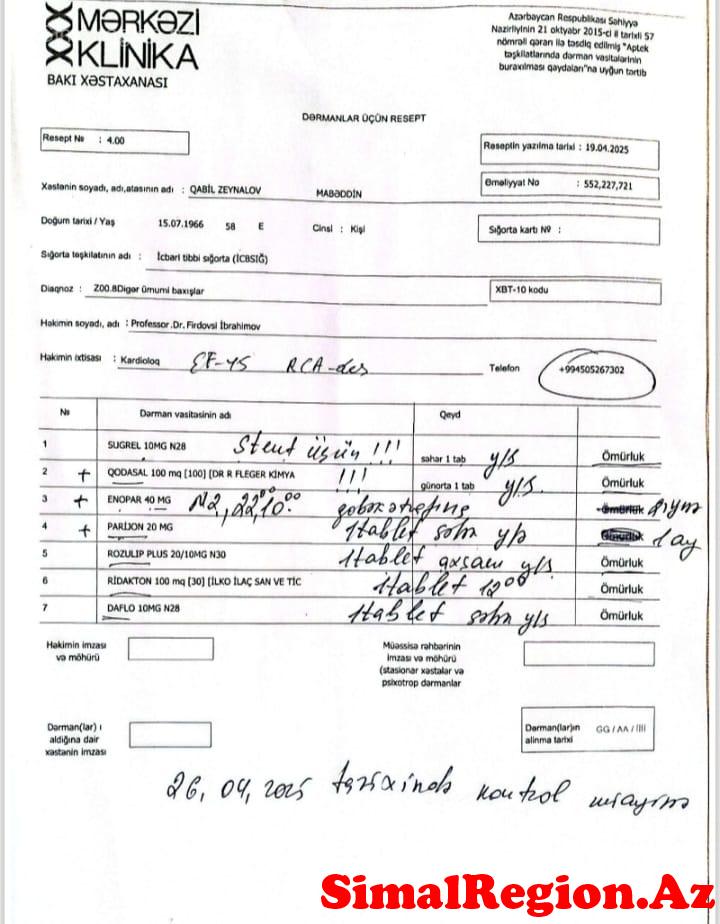 MƏRKƏZİ
KLİNİKA
BAKI XƏSTAXANASI
Azərbaycan Respublikası Səhiyyə
Nazirliyinin 21 oktyabr 2015-ci il tarixli 57
nömrəli qərarı ilə təsdiq edilmiş "Aptek
təşkilatlarında dərman vasitələrinin
buraxılması qaydaları"na uyğun tərtib
DƏRMANLAR ÜÇÜN RESEPT
Resept № : 4.00
Reseptin yazılma tarixi : 19.04.2025
Xəstənin soyadı, adı,atasının adı : QABİL ZEYNALOV MABƏDDİN
Əməliyyat No : 552,227,721
Doğum tarixi / Yaş 15.07.1966 58 E Cinsi : Kişi
Sığorta kartı № :
Sığorta təşkilatının adı : İcbari tibbi sığorta (İCBSIĞ)
Diaqnoz : Z00.8Digər ümumi baxışlar
XBT-10 kodu
Həkimin soyadı, adı : Professor.Dr. Firdovsi İbrahimov
Həkimin ixtisası : Kardioloq EF-45 RCA-des
Telefon +994505267302
№ Dərman vasitəsinin adı Qeyd
1 SUGREL 10MG N28 Stent üçün !!! səhər 1 tab y/s Ömürlük
2 + QODASAL 100 mq [100] [DR R FLEGER KİMYA !!! günorta 1 tab y/s. Ömürlük
3 + ENOPAR 40 MG N2, 22 00 10.00 Ömürlük
4 + PARİJON 20 MG 1 tablet səhər y/s 1 ay
5 ROZULIP PLUS 20/10MG N30 1 tablet axşam y/s Ömürlük
6 RİDAKTON 100 mq [30] (İLKO İLAÇ SAN VE TİC 1 tablet 12 00 Ömürlük
7 DAFLO 10MG N28 1 tablet səhər y/s Ömürlük
Həkimin imzası
və möhürü
Müəssisə rəhbərinin
imzası və möhürü
(stasionar xəstələr və
psixotrop dərmanlar
Dərman(lar) ı
aldığına dair
xəstənin imzası
Dərman(lar)ın
alınma tarixi
GG / AA / İİİİ
26, 04, 2025 tarixində kontrol müayinə
SimalRegion.Az